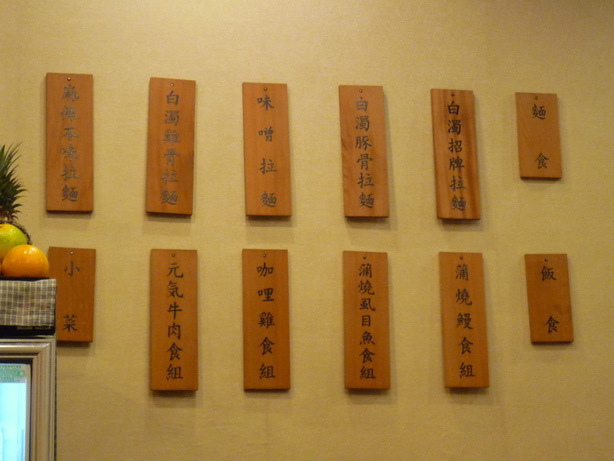 麵食
白濁招牌拉麵
白濁豚骨拉麵
味噌拉麵
白濁雞骨拉麵
拉麵
飯食
蒲燒鰻食組
蒲燒虱目魚食組
咖哩雞食組
元氣牛肉食組
小菜